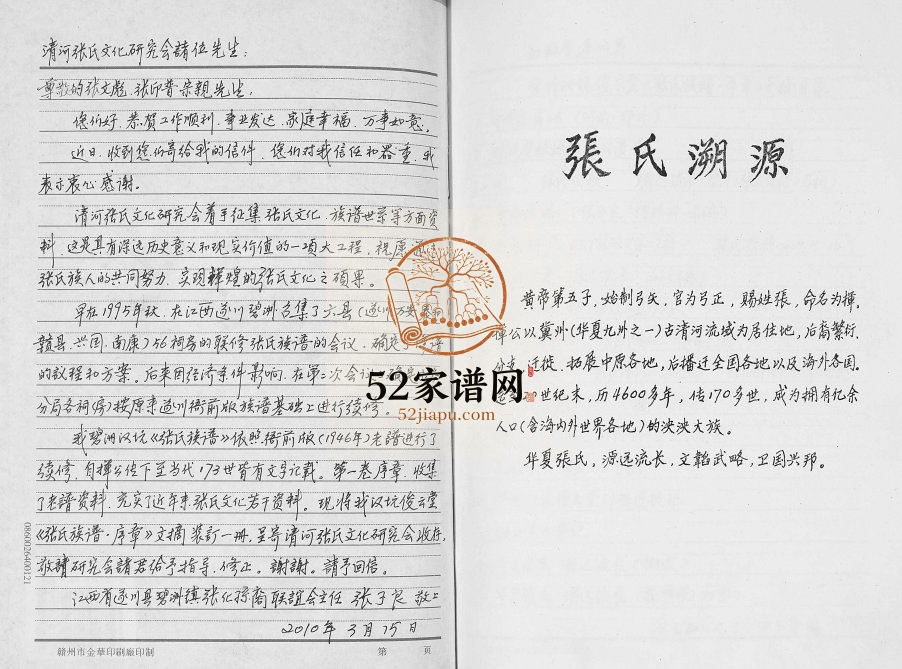 清河张氏文化研究会諸位先生：
尊敬的张文彪、张印普宗親先生：
您们好，恭賀工作順利，事业发达，家庭幸福，万事如意。
近日，收到您们寄给我的信件，您们对我信任和器重，我
表示衷心感谢。
清河张氏文化研究会着手征集张氏文化、族谱世系等方面资
料，这是具有深远历史意义和现实价值的一項大工程，祝愿
张氏族人的共同努力，实现輝煌的张氏文化之碩果。
早在1995年秋，在江西遂川碧洲召集了六县（遂川
赣县、兴国、南康）56祠房的联修张氏族谱的会议，确定
的议程和方案。后来因经济条件影响，在第二次会议
分局各祠（房）按原来遂川衙前版族谱基础上进行续修。
我碧洲汉坑《张氏族谱》依照衙前版（1946年）老譜进行了
续修，自揮公位下至当代173世皆有文字记载。第一卷序章，收集
了老譜资料，充实了近年来张氏文化若干资料。现将我汉坑俊云堂
《张氏族谱·序章》文摘装订一册，呈寄清河张氏文化研究会收存，
敬請研究会諸君给予指导、修正。謝謝。請予回信。
江西省遂川县碧洲镇张化孫裔联誼会主任 张子良 敬上
2010年3月15日
0860026400121
赣州市金華印刷廠印制 第 页
張氏溯源
黄帝第五子，始制弓矢，官为弓正，赐姓張，命名为揮，
揮公以冀州（华夏九州之一）古清河流域为居住地，后裔繁衍、
分支、迁徙，拓展中原各地，后播迁全国各地以及海外各国。
世纪末，历4600多年，传170多世，成为拥有亿余
人口（含海内外世界各地）的泱泱大族。
华夏张氏，源远流长，文韜武略，卫国兴邦。
52家谱网
52jiapu.com